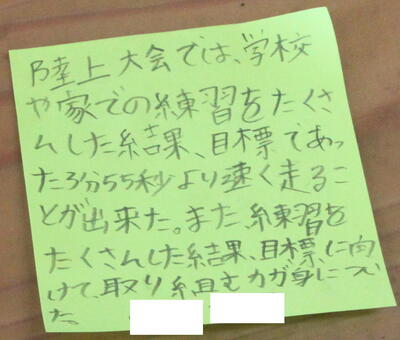 陸上大会では、学校
や家での練習をたくさ
んした結果、目標であっ
た3分55秒より速く走るこ
とが出来た。また、練習を
たくさんした結果、目標に向
けて、取り組む力が身につい
た。